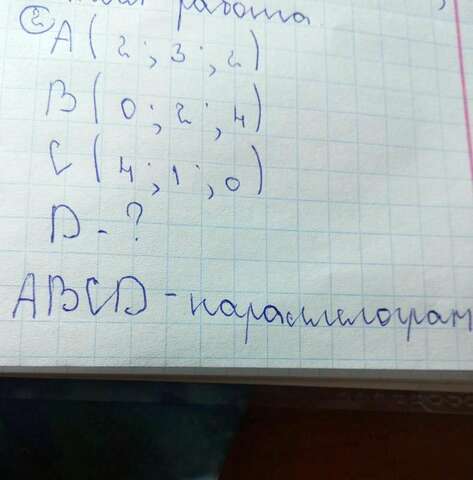 работа
② A(2;3;2)
B(0;2;4)
C(4;1;0)
D-?
ABCD-параллелограм